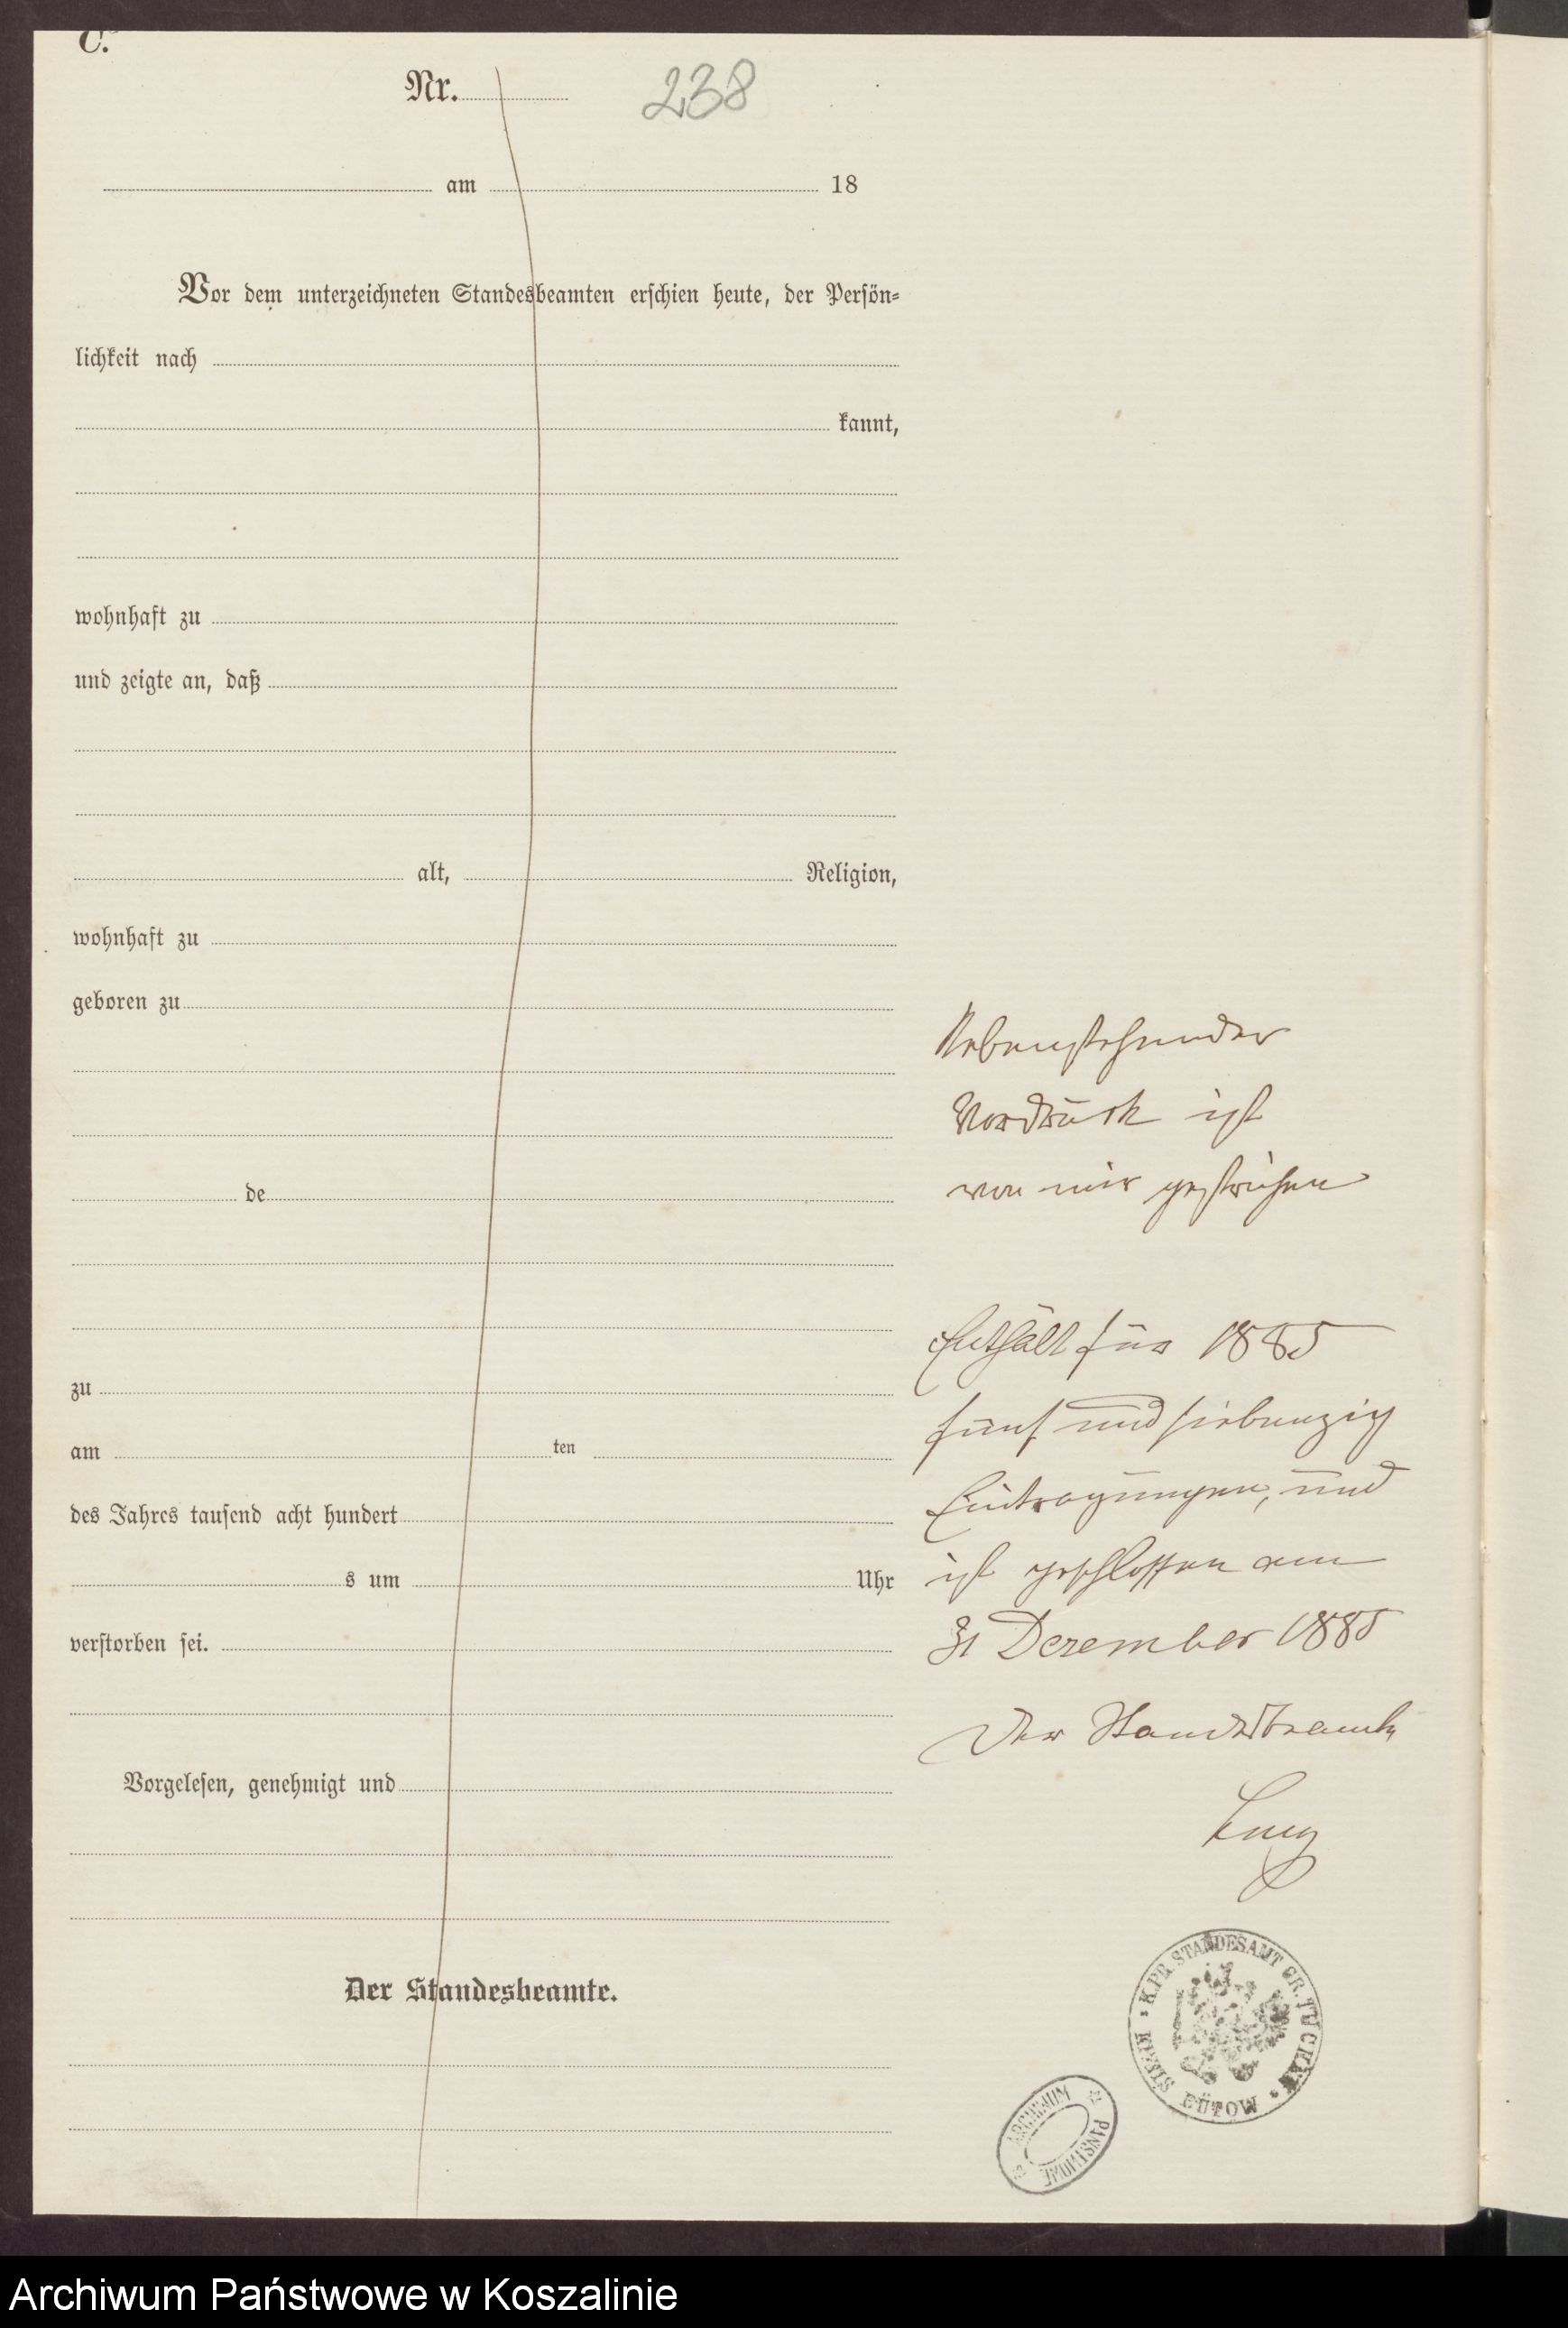 C.
Nr. 238
am 18
Vor dem unterzeichneten Standesbeamten erschien heute, der Persön=
lichkeit nach
kannt,
wohnhaft zu
und zeigte an, daß
alt, Religion,
wohnhaft zu
geboren zu
de
zu
am ten
des Jahres tausend acht hundert
s um Uhr
verstorben sei.
Vorgelesen, genehmigt und
Der Standesbeamte.
Nebenstehender
Vordruck ist
von mir gestrichen
Enthält für 1885
fünf und siebenzig
Eintragungen, und
ist geschlossen am
31 Dezember 1885
Der Standesbeamte
K. PR. STANDESAMT GR. TUCHEN
KREIS BÜTOW
ARCHIWUM PAŃSTWOWE
Archiwum Państwowe w Koszalinie